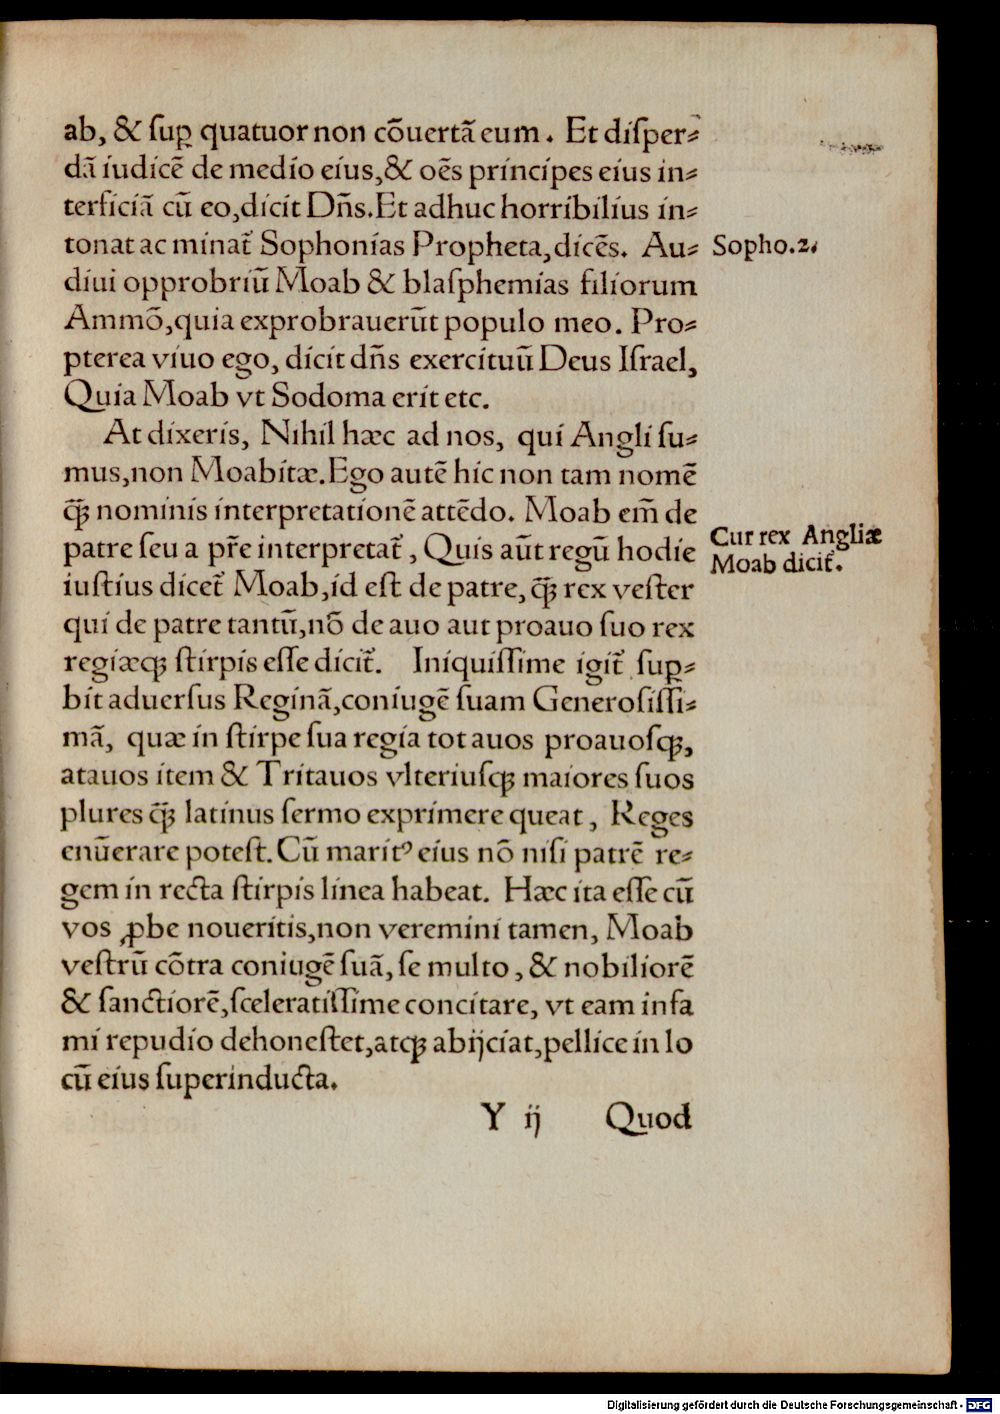 ab, & ſuꝑ quatuor non cōuertā eum. Et diſper⸗
dā iudicē de medio eius,& oēs principes eius in⸗
terficiā cū eo,dicit Dñs.Et adhuc horribilius in⸗
tonat ac minat᷑ Sophonias Propheta,dicēs. Au⸗
Sopho.2.
diui opprobriū Moab & blaſphemias filiorum
Ammō,quia exprobrauerūt populo meo. Pro⸗
pterea viuo ego, dicit dñs exercituū Deus Iſrael,
Quia Moab vt Sodoma erit etc.
At dixeris, Nihil hæc ad nos, qui Angli ſu⸗
mus,non Moabitæ.Ego autē hic non tam nomē
ꝙ̄ nominis interpretationē attēdo. Moab em̄ de
patre ſeu a pr̄e interpretat᷑, Quis aūt regū hodie
Cur rex Angliæ
Moab dicit᷑.
iuſtius dicet᷑ Moab,id eſt de patre, ꝙ̄ rex veſter
qui de patre tantū,nō de auo aut proauo ſuo rex
regiæqꝫ ſtirpis eſſe dicit᷑. Iniquiſſime igit᷑ ſuꝑ⸗
bit aduerſus Reginā,coniugē ſuam Generoſiſſi⸗
mā, quæ in ſtirpe ſua regia tot auos proauoſqꝫ,
atauos item & Tritauos vlteriuſqꝫ maiores ſuos
plures ꝙ̄ latinus ſermo exprimere queat, Reges
enūerare poteſt.Cū maritꝰ eius nō niſi patrē re⸗
gem in recta ſtirpis linea habeat. Hæc ita eſſe cū
vos ꝓbe noueritis,non veremini tamen, Moab
veſtrū cōtra coniugē ſuā, ſe multo, & nobiliorē
& ſanctiorē,ſceleratiſſime concitare, vt eam infa
mi repudio dehoneſtet,atqꝫ abijciat,pellice in lo
cū eius ſuperinducta.
Y ij Quod
Digitalisierung gefördert durch die Deutsche Forschungsgemeinschaft - DFG